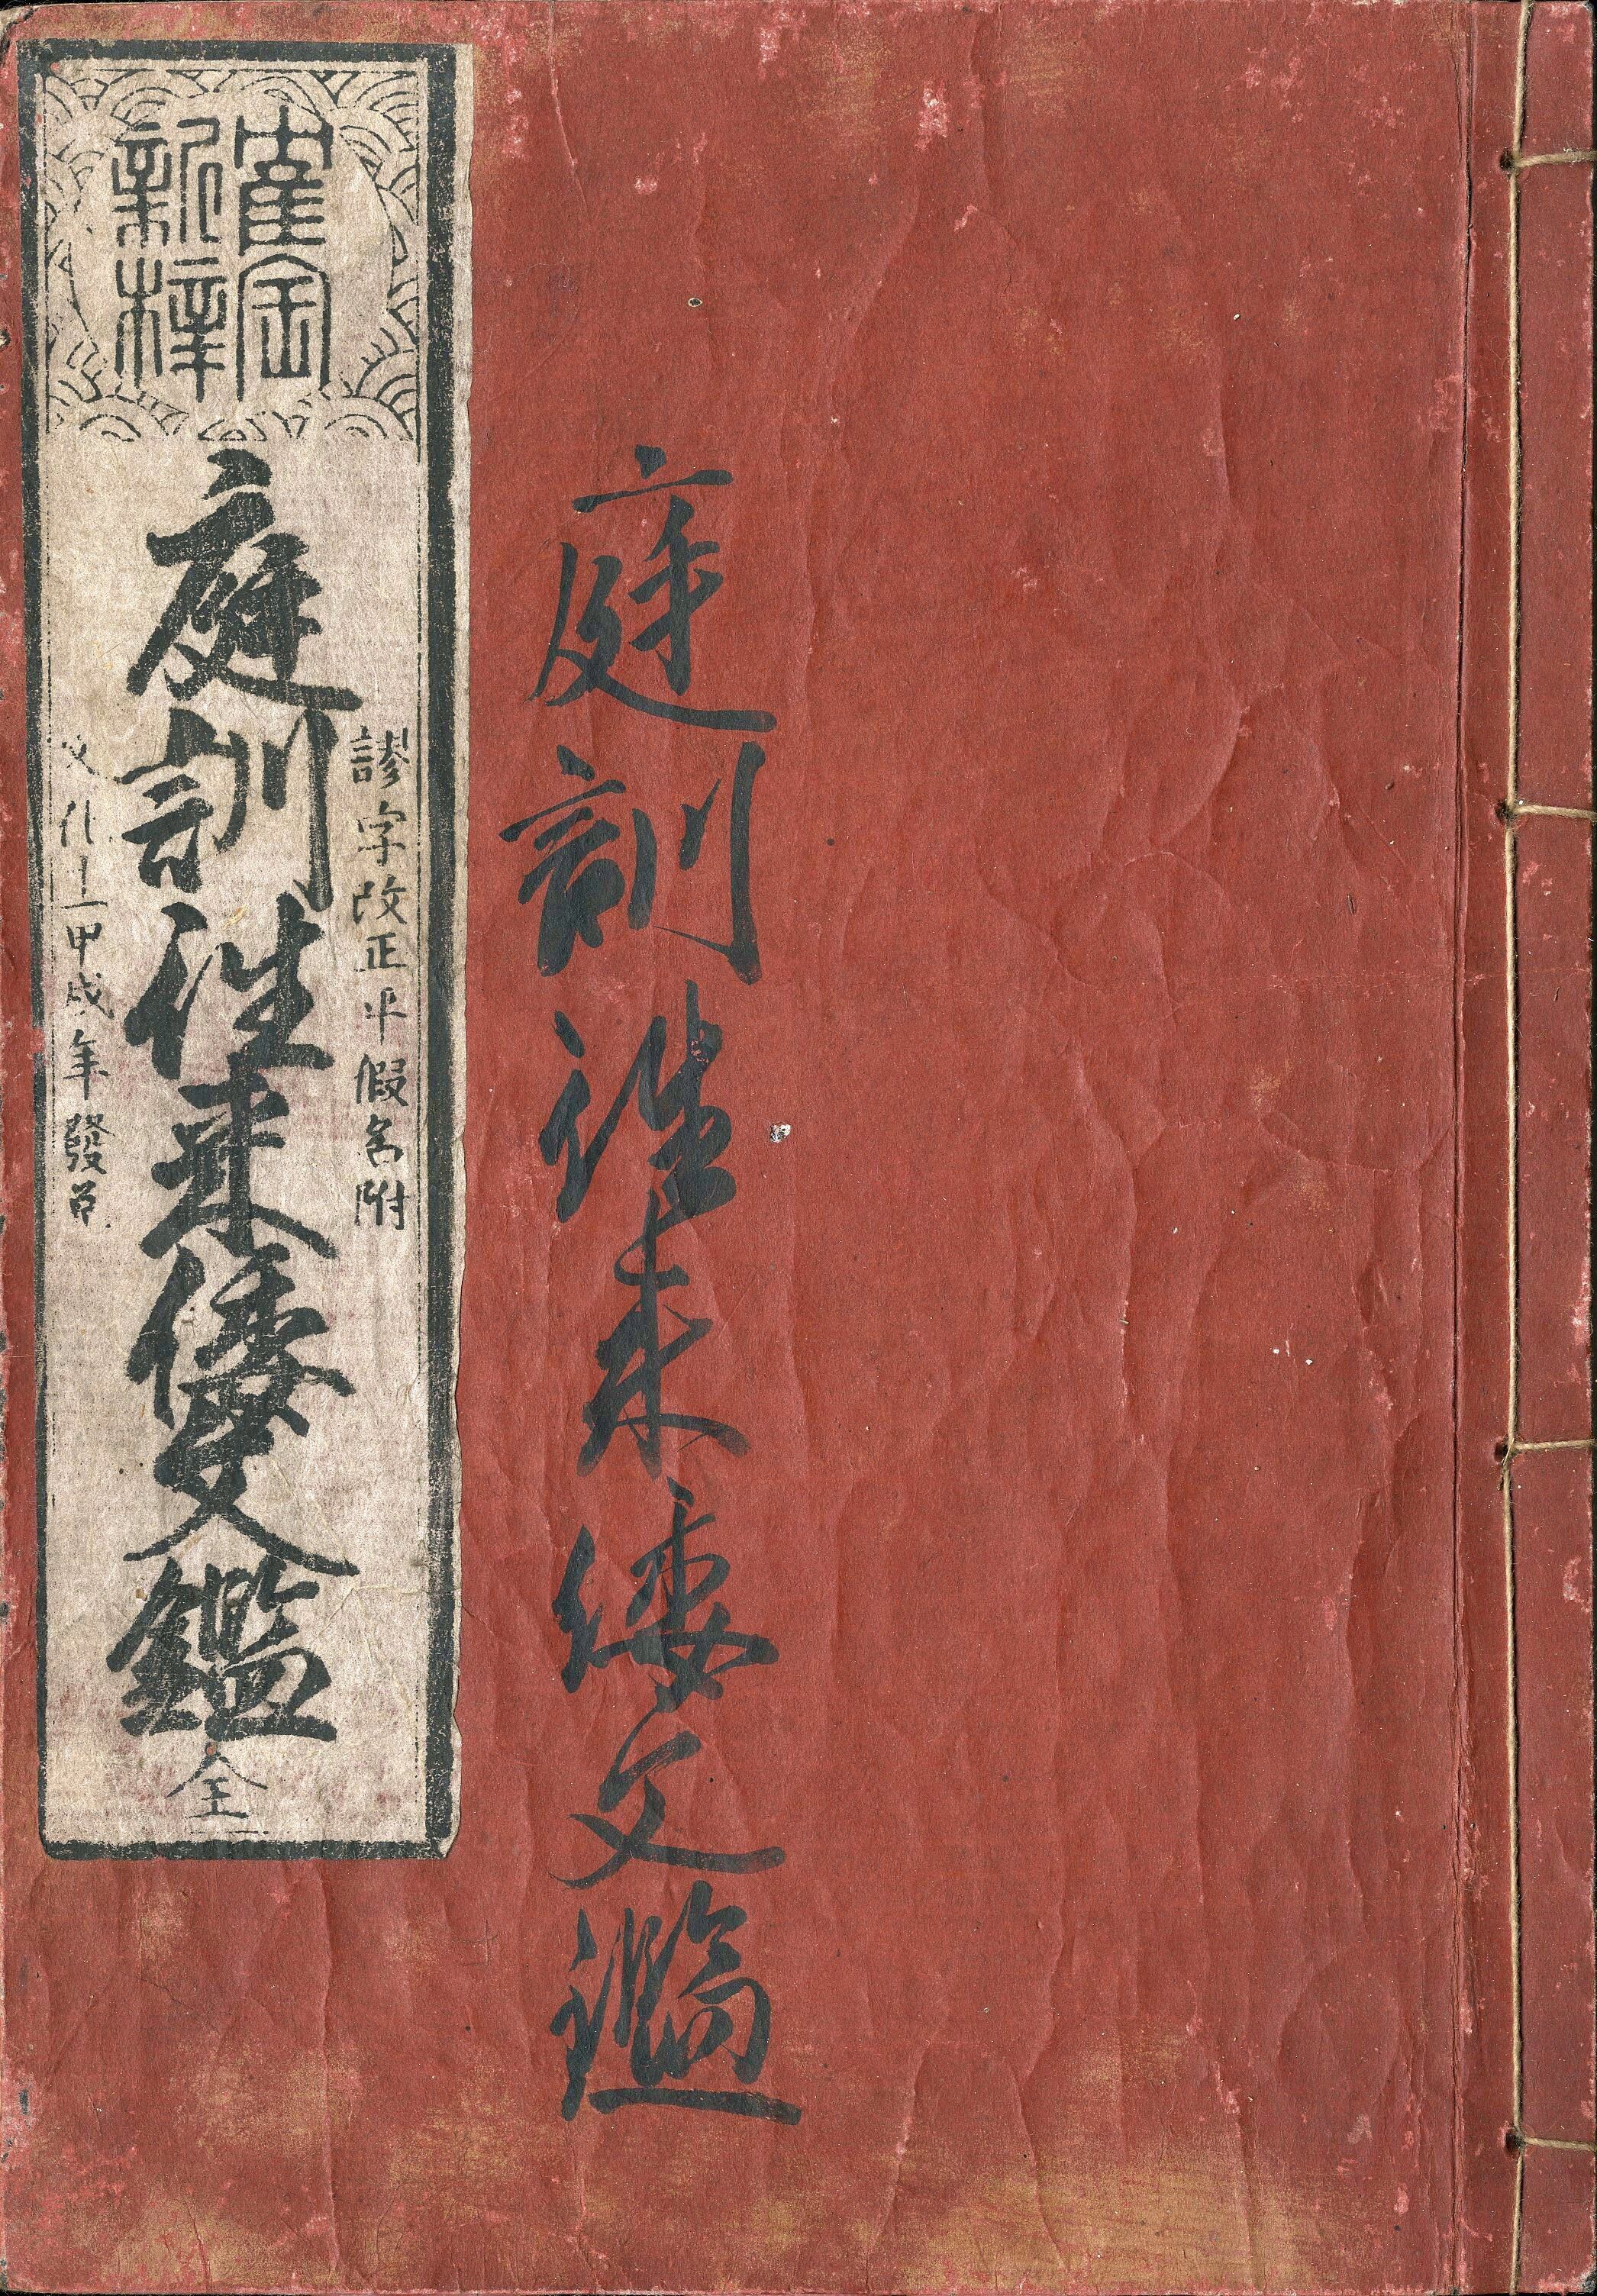 庭訓徃来倭文鑑
新梓
謬字改正平假名附
庭訓徃来倭文鑑 全
文化十一甲戌年發